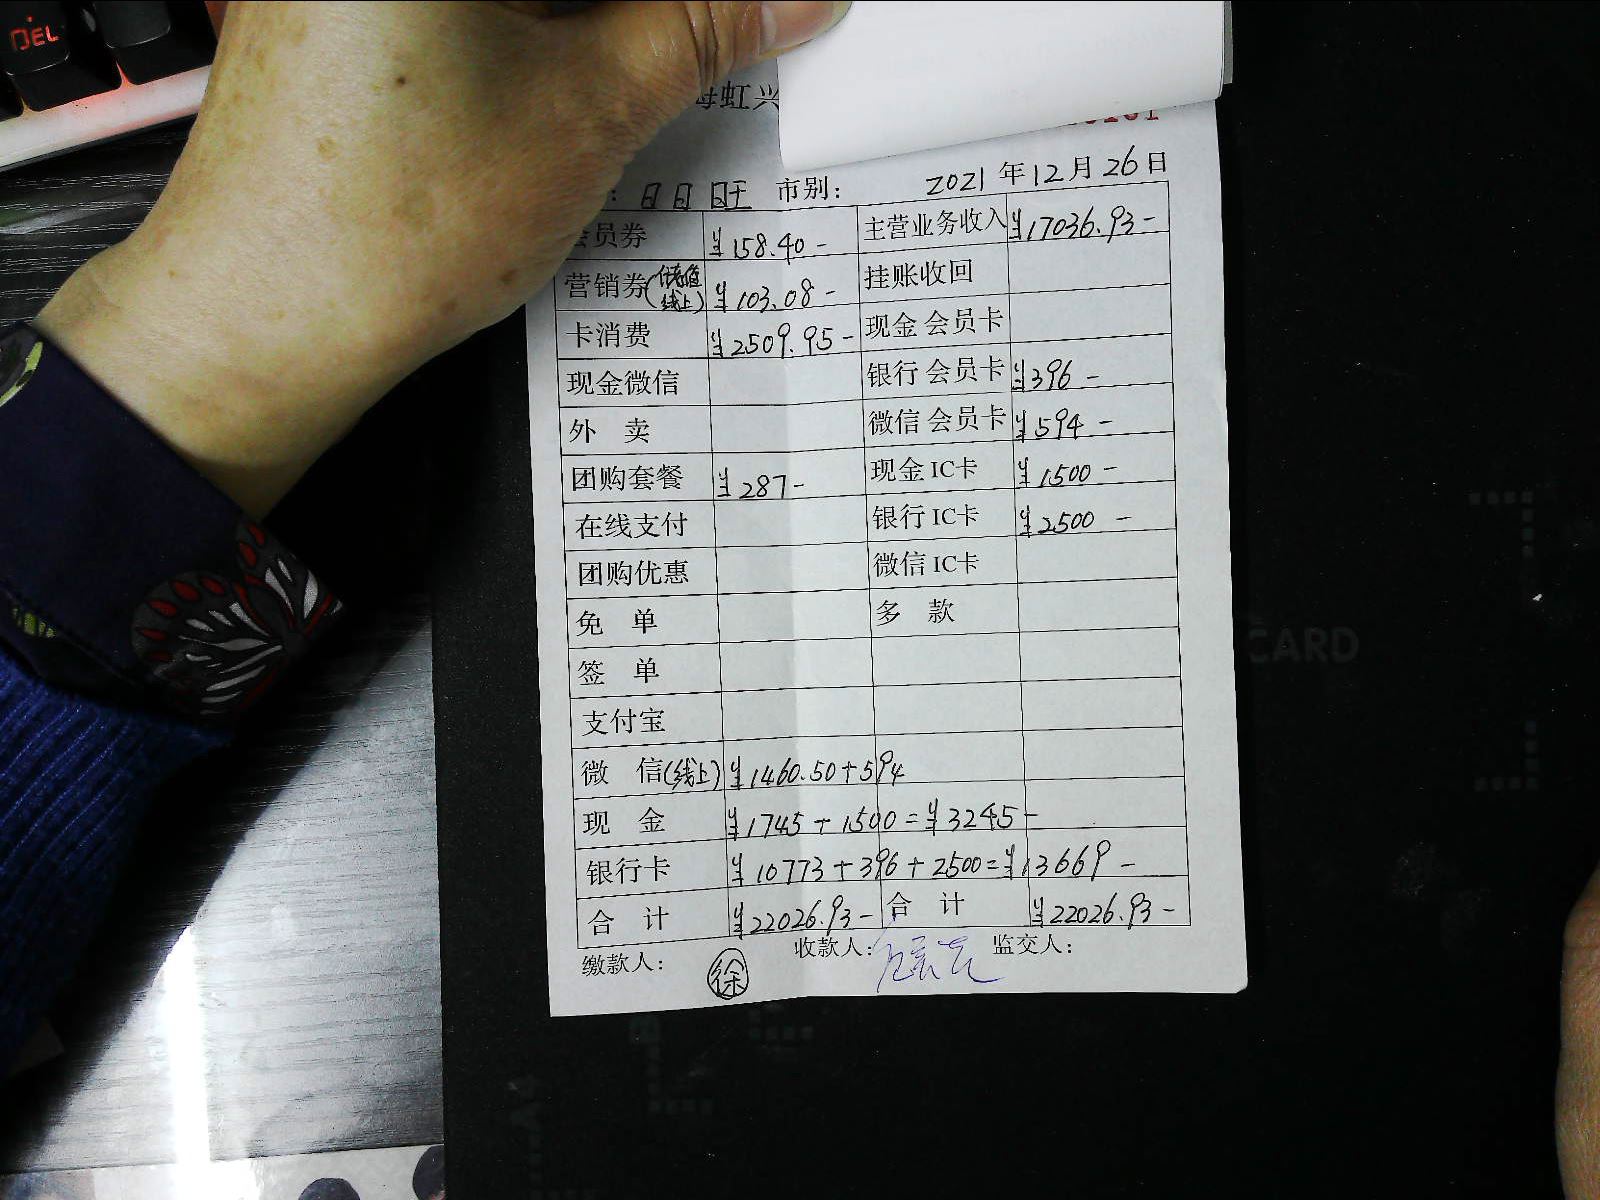 DEL
海虹兴
: 日日旺 市别: 2021年12月26日
会员券 ¥158.40- 主营业务收入 ¥17036.93-
营销券(储值线上) ¥103.08- 挂账收回
卡消费 ¥2509.95- 现金会员卡
现金微信 银行会员卡 ¥396-
外 卖 微信会员卡 ¥594-
团购套餐 ¥287- 现金IC卡 ¥1500-
在线支付 银行IC卡 ¥2500-
团购优惠 微信IC卡
免 单 多 款
签 单
支付宝
微 信(线上) ¥1460.50+594
现 金 ¥1745+1500=¥3245-
银行卡 ¥10773+396+2500=¥13669-
合 计 ¥22026.93- 合 计 ¥22026.93-
缴款人: 徐 收款人: 监交人:
CARD